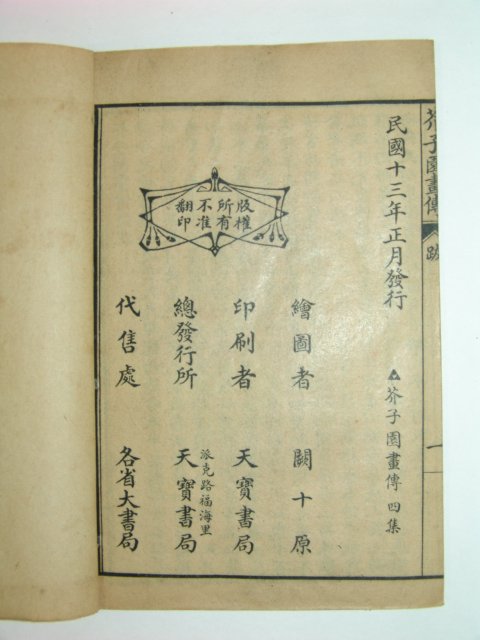 芥子園畫傳 跋 一
民國十三年正月發行
芥子園畫傳 四集
版權所有
不准翻印
繪圖者 闕十原
印刷者 天寶書局
派克路福海里
總發行所 天寶書局
代售處 各省大書局